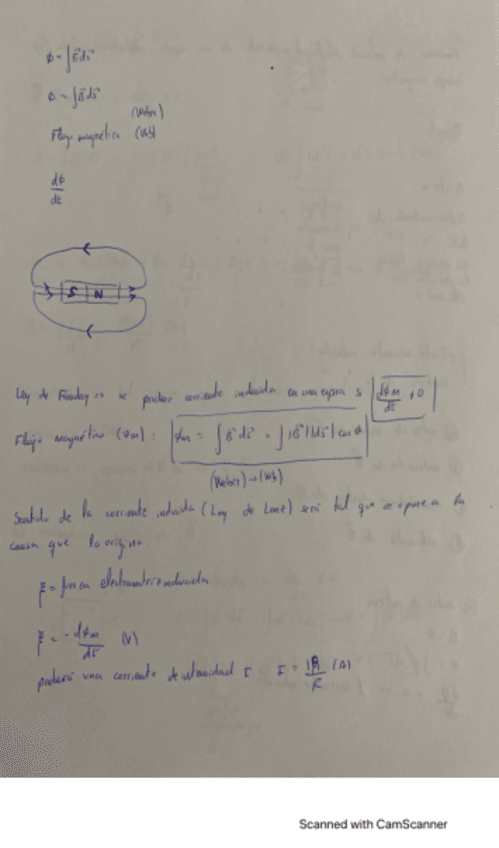 ϕ = ∫E⃗ds⃗
ϕ = ∫B⃗ds⃗
(Weber)
Flujo magnético (Wb)
dϕ
dt
S N
Ley de Faraday => se produce corriente inducida en una espira si dϕm/dt ≠ 0
Flujo magnético (ϕm): ϕm = ∫B⃗ds⃗ = ∫|B⃗||ds⃗| cos
(Weber)→(Wb)
Sentido de la corriente inducida (Ley de Lenz) será tal que se opone a la
causa que lo origina.
ξ = fuerza electromotriz inducida
ξ = -dϕm/dt (V)
producirá una corriente de intensidad I I = /R (A)
Scanned with CamScanner